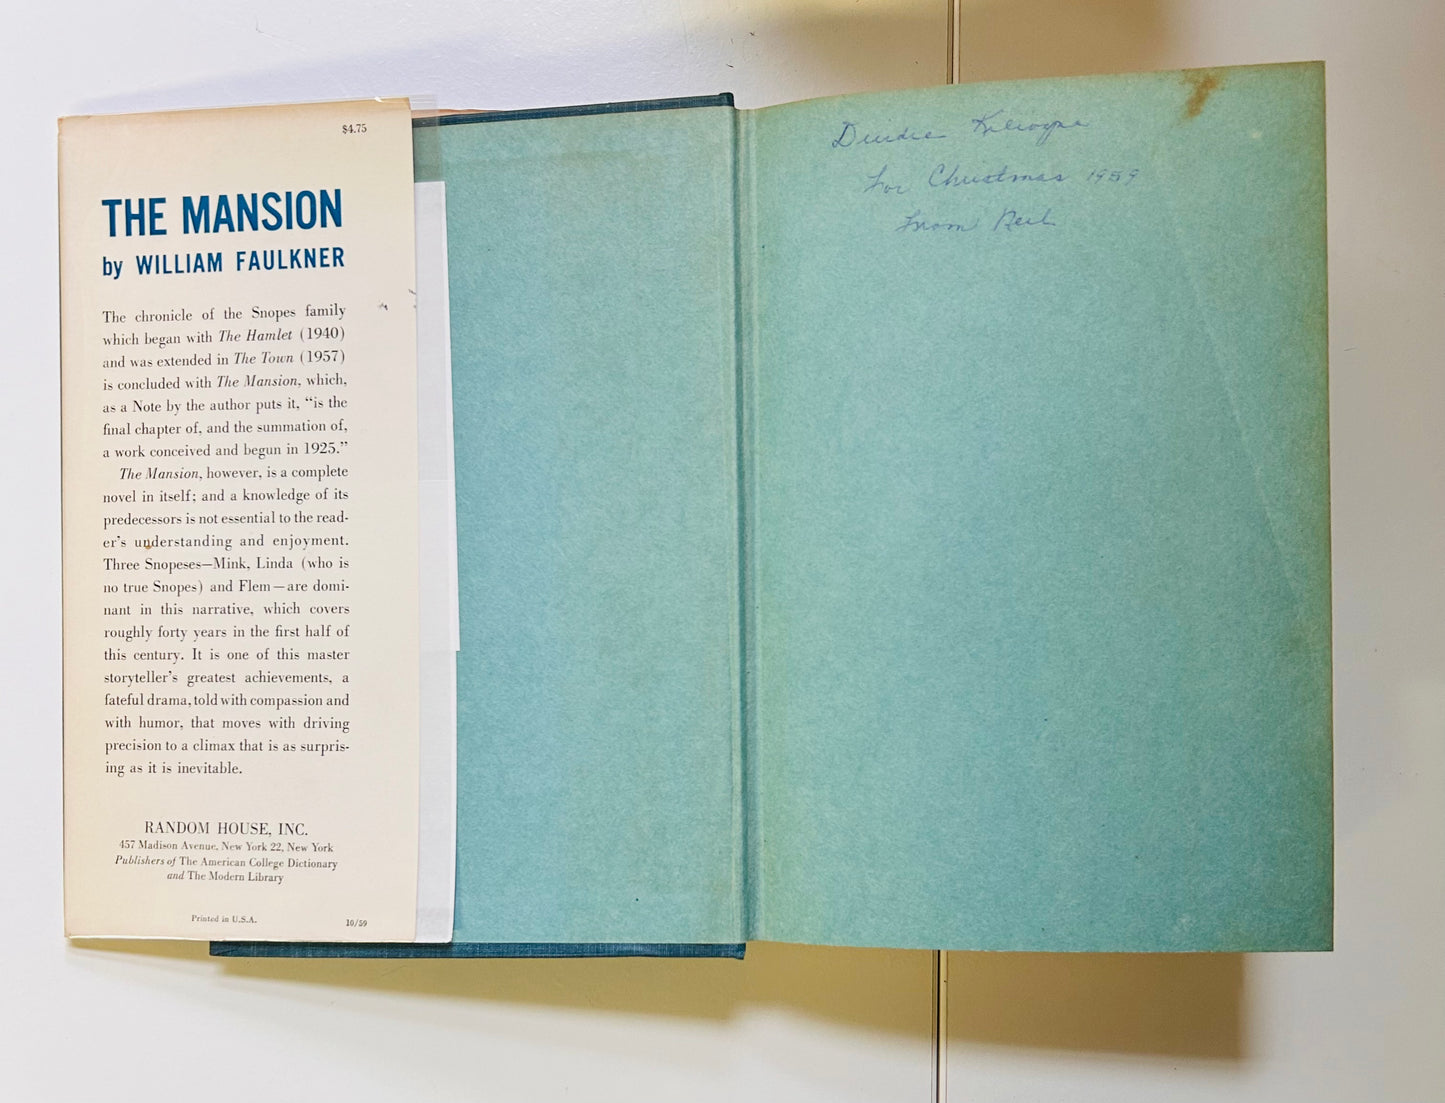 $4.75
THE MANSION
by WILLIAM FAULKNER
The chronicle of the Snopes family
which began with The Hamlet (1940)
and was extended in The Town (1957)
is concluded with The Mansion, which,
as a Note by the author puts it, “is the
final chapter of, and the summation of,
a work conceived and begun in 1925.”
The Mansion, however, is a complete
novel in itself; and a knowledge of its
predecessors is not essential to the read-
er’s understanding and enjoyment.
Three Snopeses—Mink, Linda (who is
no true Snopes) and Flem—are domi-
nant in this narrative, which covers
roughly forty years in the first half of
this century. It is one of this master
storyteller’s greatest achievements, a
fateful drama, told with compassion and
with humor, that moves with driving
precision to a climax that is as surpris-
ing as it is inevitable.
RANDOM HOUSE, INC.
457 Madison Avenue, New York 22, New York
Publishers of The American College Dictionary
and The Modern Library
Printed in U.S.A.
10/59
for Christmas 1959
from